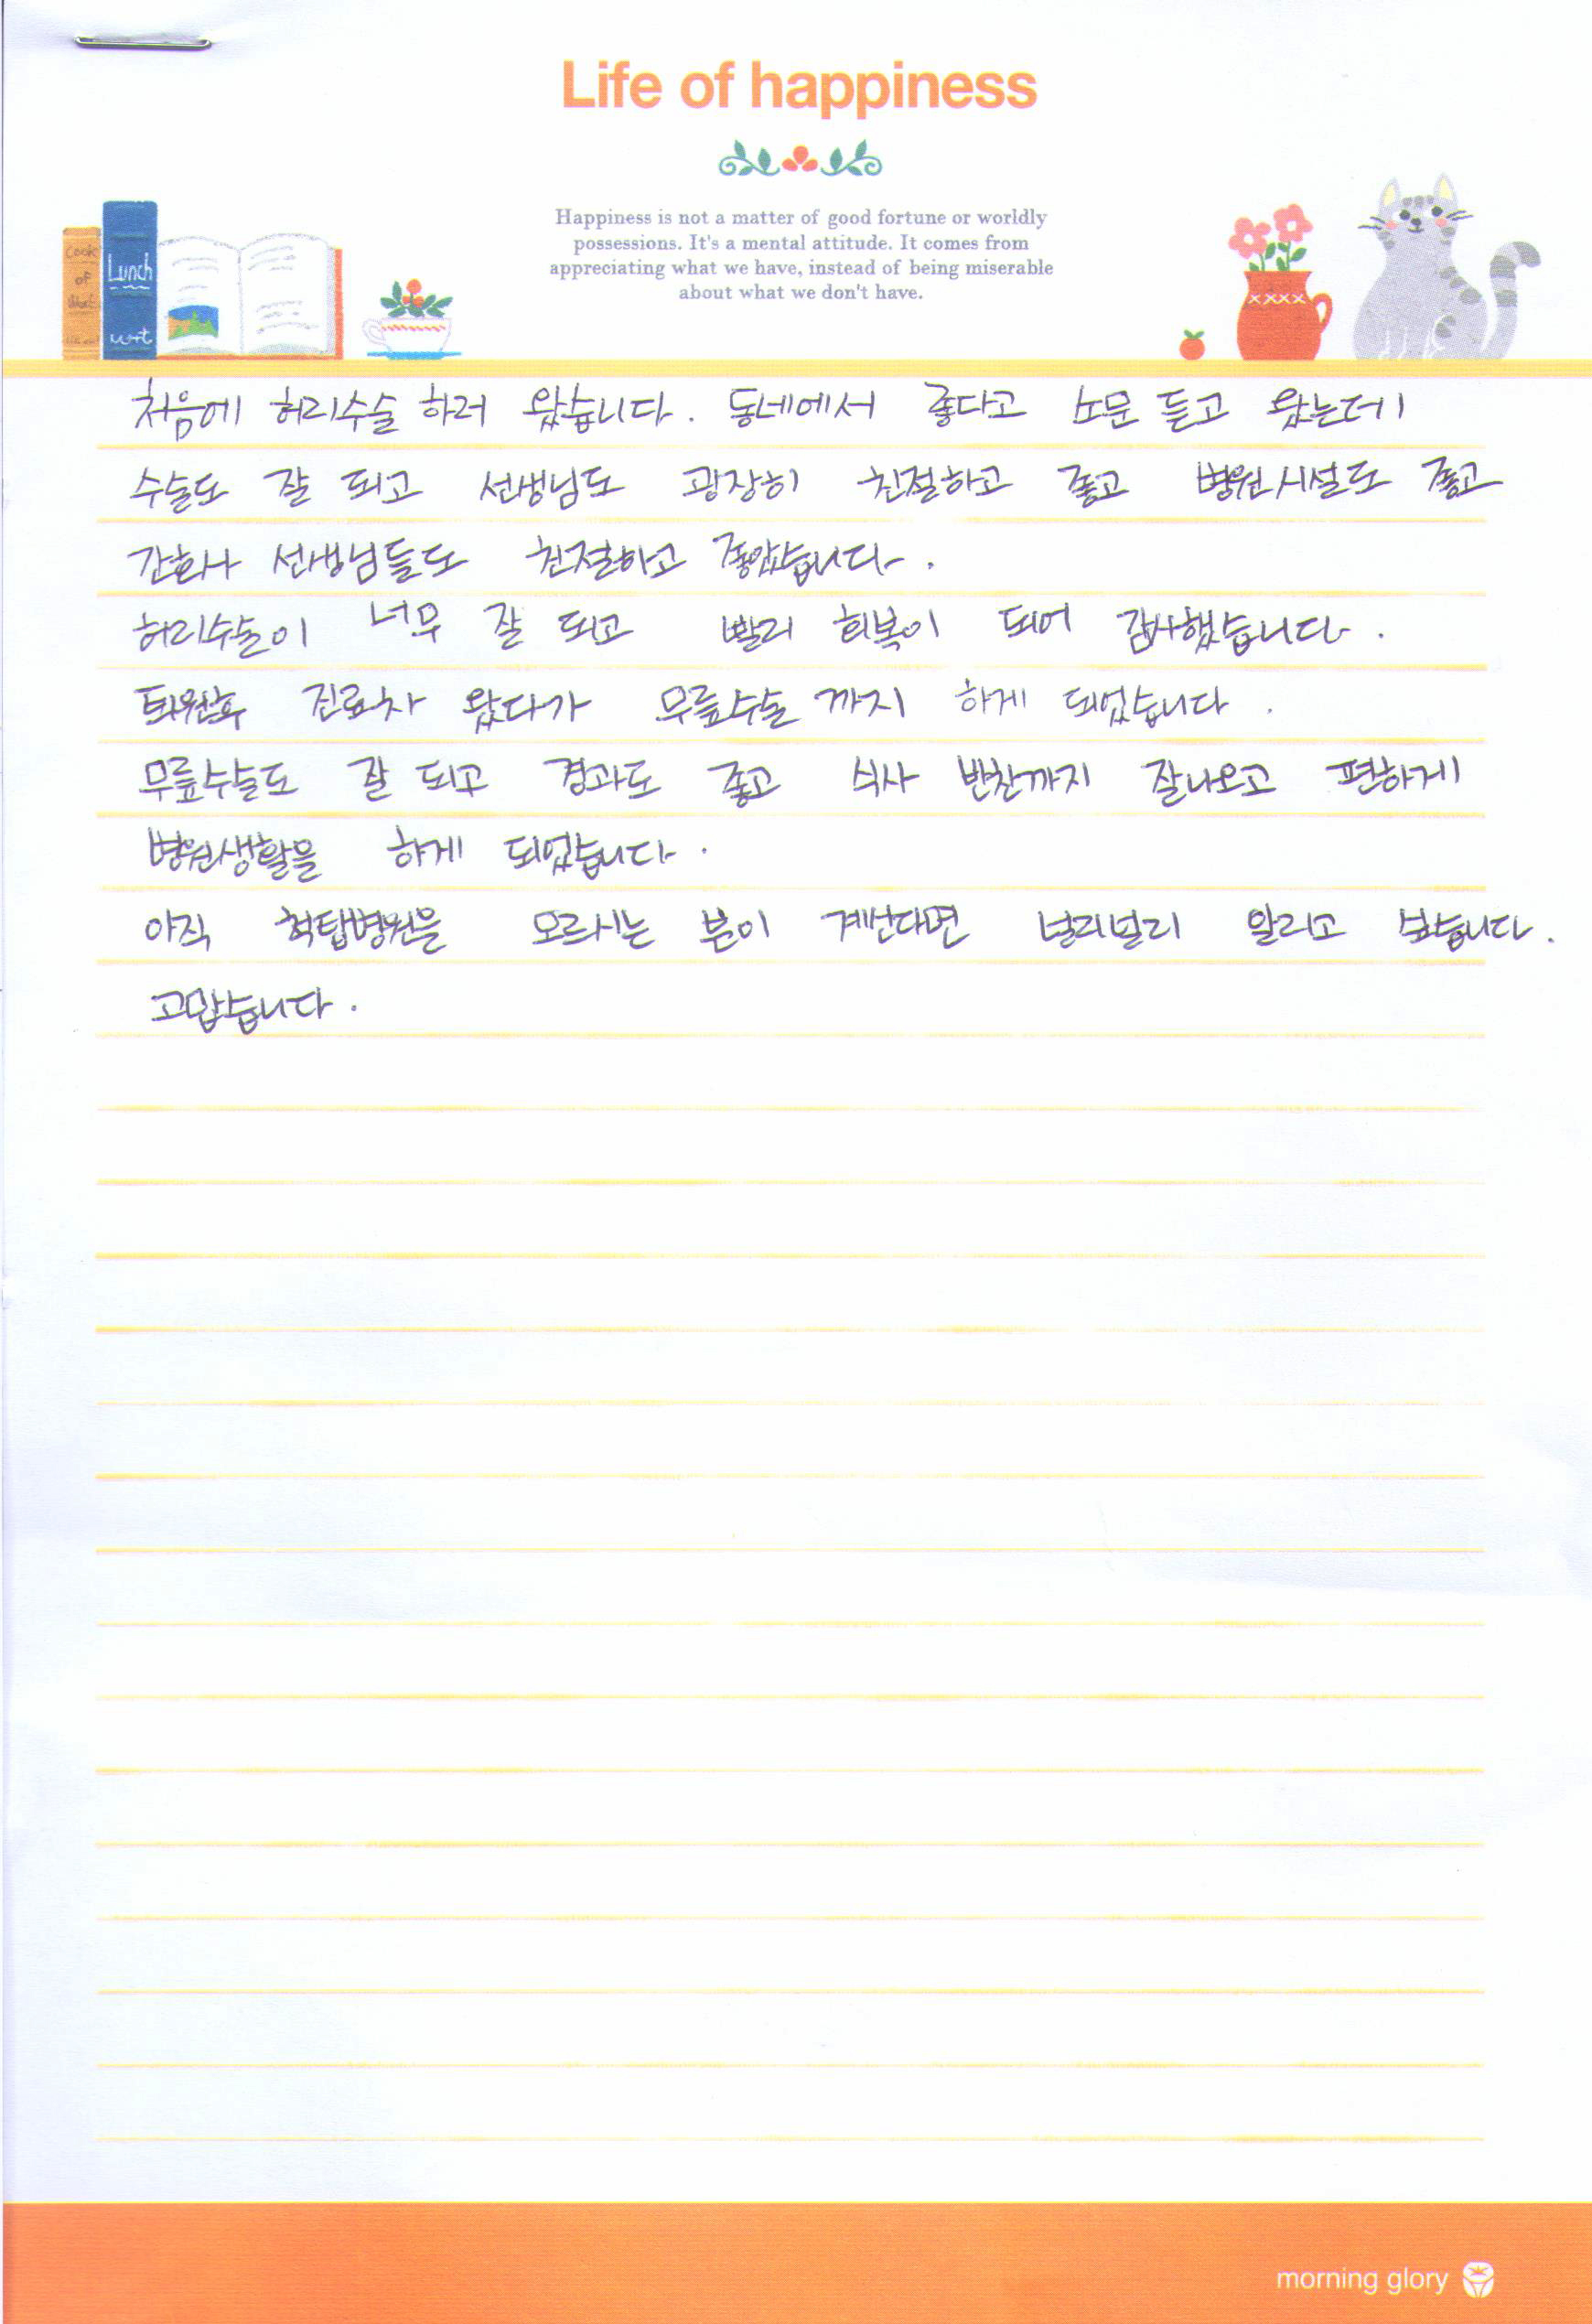 Life of happiness
Happiness is not a matter of good fortune or worldly
possessions. It's a mental attitude. It comes from
appreciating what we have, instead of being miserable
about what we don't have.
Cook
of
Lunch
처음에 허리수술 하러 왔습니다. 동네에서 좋다고 소문 듣고 왔는데
수술도 잘 되고 선생님도 광장히 친절하고 좋고 병원시설도 좋고
간호사 선생님들도 친절하고 좋았습니다.
허리수술이 너무 잘 되고 빨리 회복이 되어 감사했습니다.
퇴원후 진료차 왔다가 무릎수술 까지 하게 되었습니다.
무릎수술도 잘 되고 경과도 좋고 식사 반찬까지 잘나오고 편하게
병원생활을 하게 되었습니다.
아직 척탑병원을 모르시는 분이 계신다면 널리널리 알리고 싶습니다.
고맙습니다.
morning glory